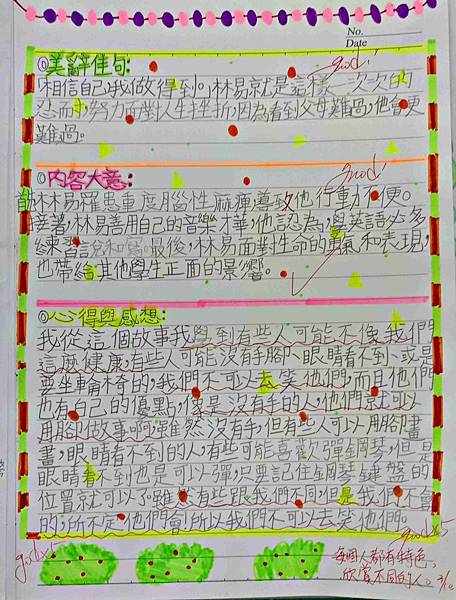 No.
Date
①美辭佳句:
good!
「相信自己,我做得到。」林易就是這樣一次次的
忍耐,努力面對人生挫折,因為看到父母難過,他會更
難過。
②內容大意:
good!
林易罹患重度腦性麻痺,導致他行動不便。
接著,林易善用自己的音樂才華,他認為,學英語必多
練習說和寫。最後,林易面對生命的勇氣和表現,
也帶給其他學生正面的影響。
③心得與感想:
我從這個故事我學到有些人可能不像我們
這麼健康,有些人可能沒有手腳、眼睛看不到、或是
要坐輪椅的,我們不可以去笑他們,而且他們
也有自己的優點,像是沒有手的人,他們就可以
用腳做事啊!雖然沒有手,但有些人可以用腳畫
畫,眼睛看不到的人,有些可能喜歡彈鋼琴,但是
眼睛看不到也是可以彈,只要記住鋼琴鍵盤的
位置就可以了。雖然有些跟我們不同,但是我們不會
的,所不定他們會!所以我們不可以去笑他們。
good x5
good x5
每個人都有特色,
欣賞不同的人。